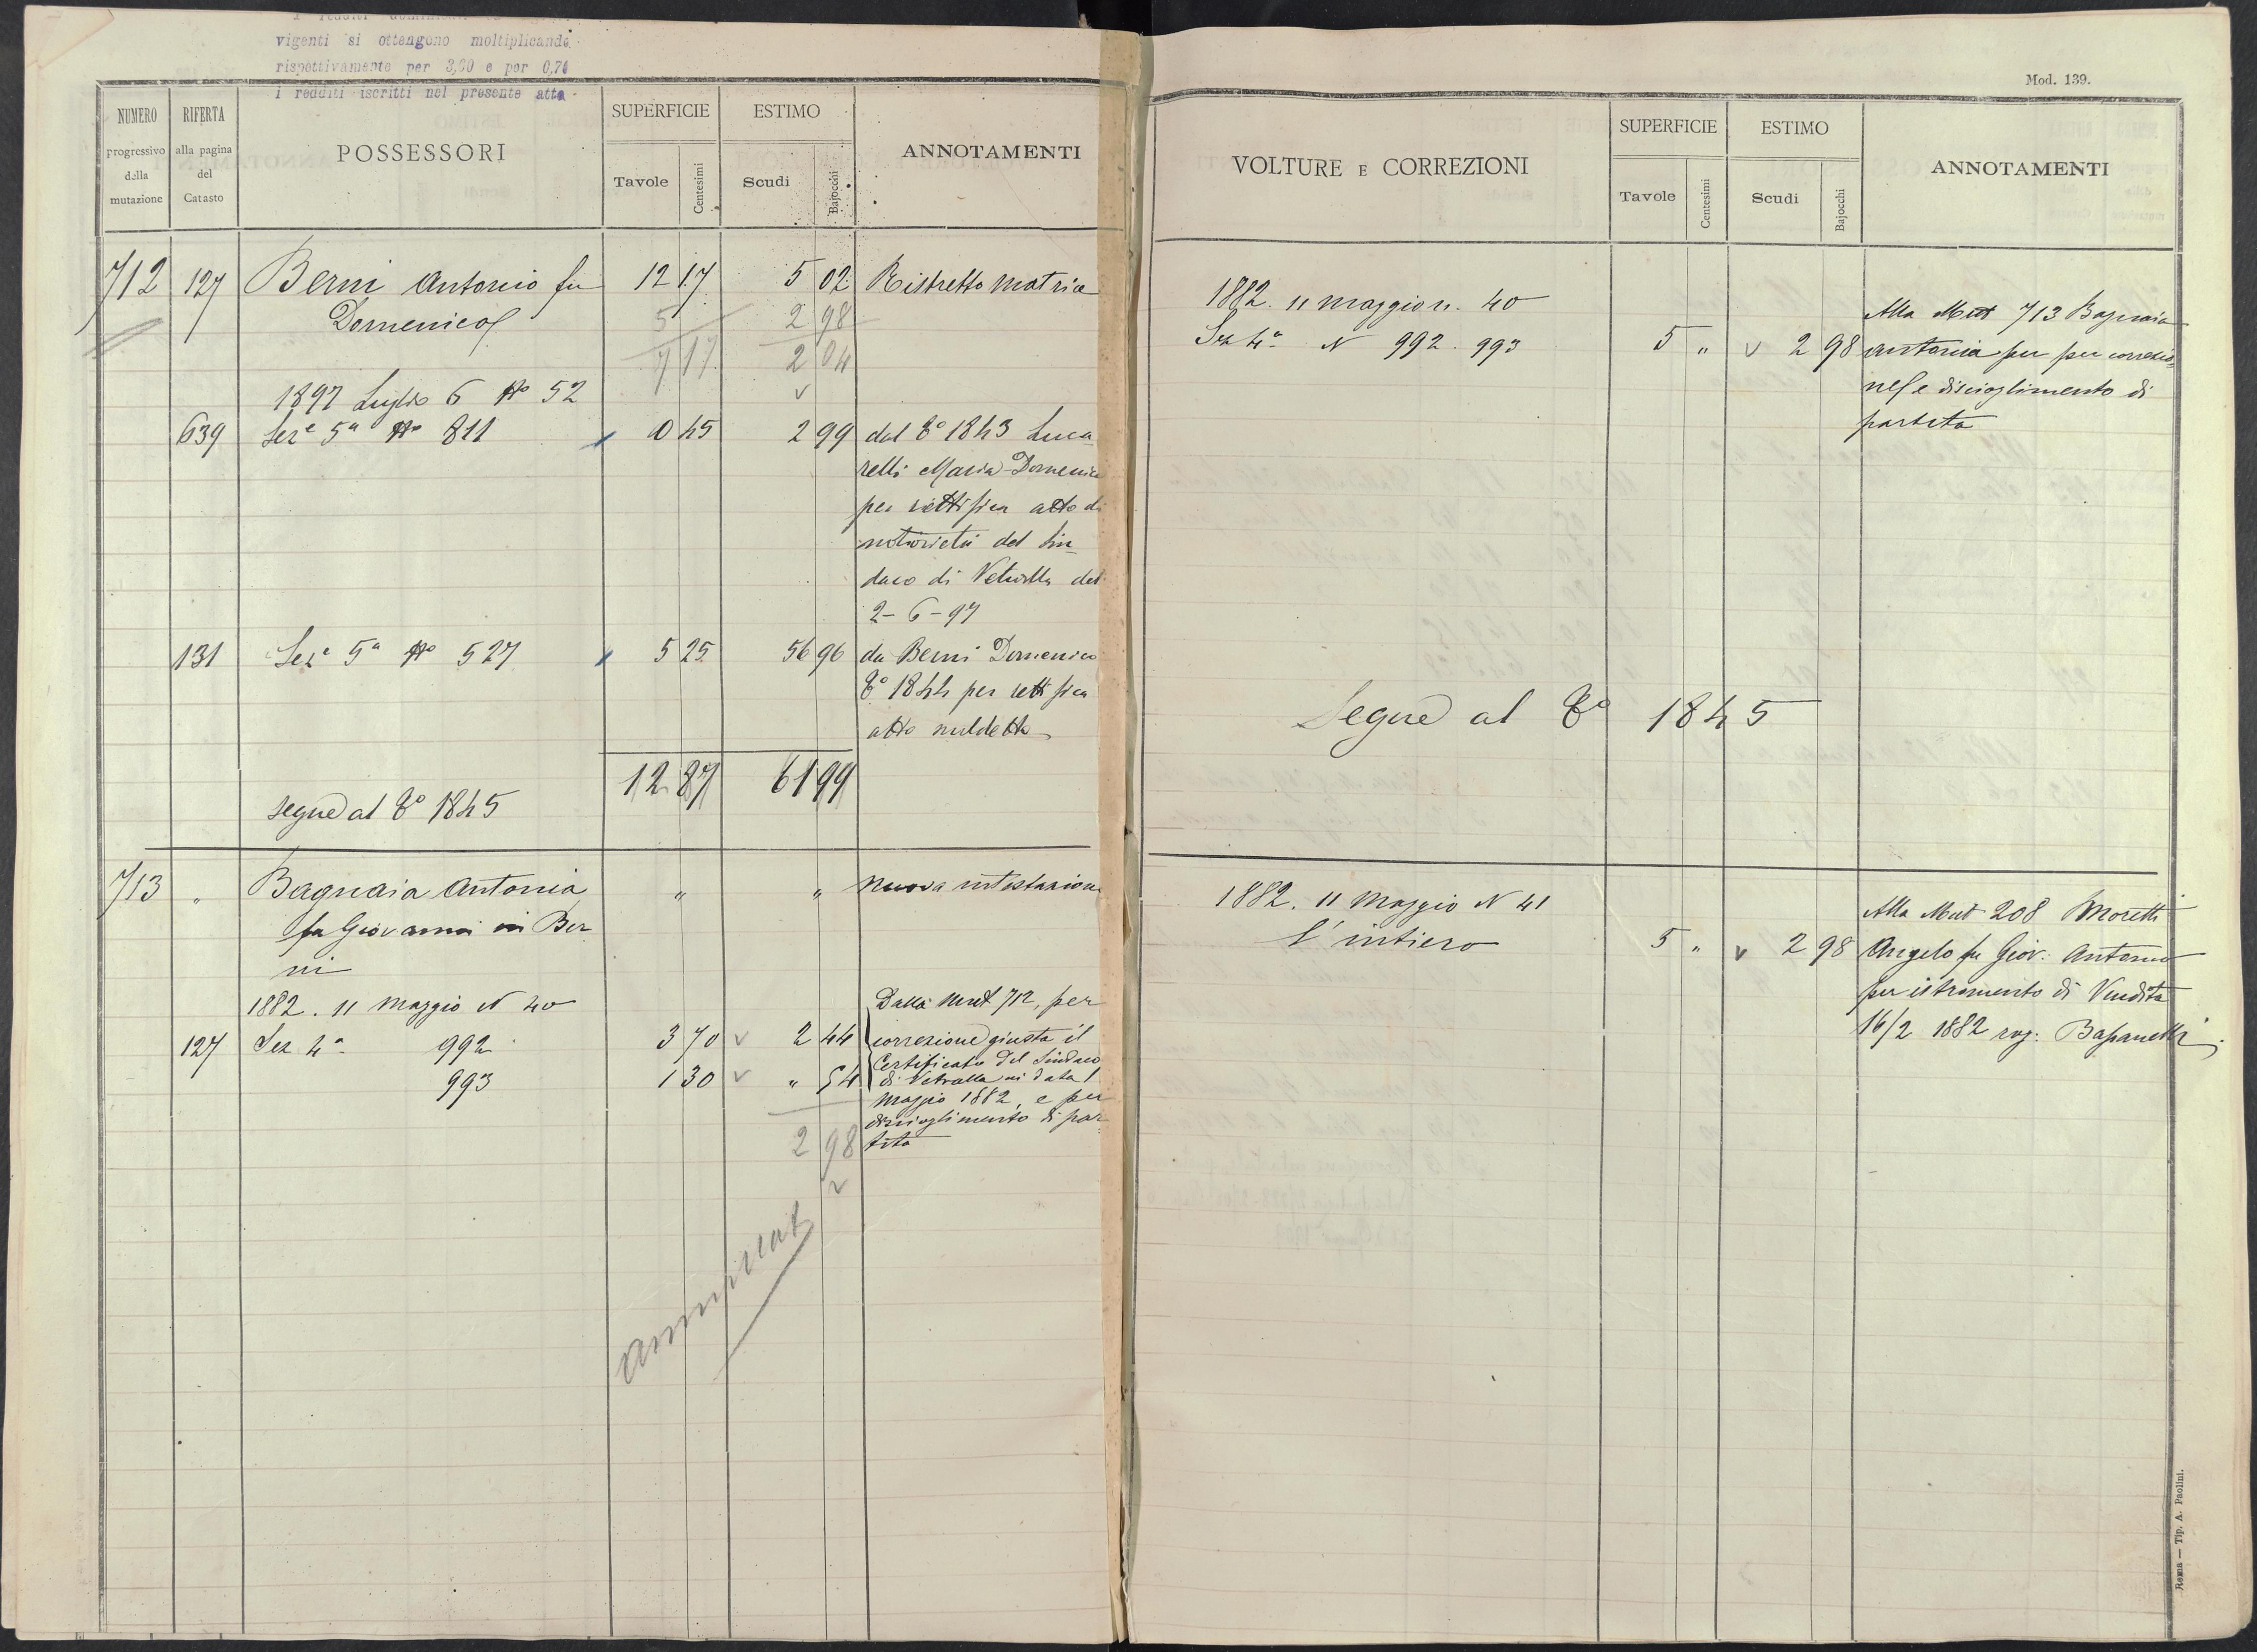 vigenti si ottengono moltiplicando
rispettivamente per 3,30 e per 0.74
i redditi iscritti nel presente atto
NUMERO progressivo della mutazione
RIFERTA alla pagina del Catasto
POSSESSORI
SUPERFICIE
Tavole Centesimi
ESTIMO
Scudi Bajocchi
ANNOTAMENTI
712 127 Berni Antonio fu 12 17 5 02 Ristretto Matrice
Domenico 5 2 98
7 17 2 04
1897 Luglio 6 No 52
639 Seze 5a No 811 0 45 2 99 dal To 1843 Luca
relli Maria Domenica
per rettifica atto di
notorietà del Sin
daco di Vetralla del
2-6-97
131 Seze 5a No 527 5 25 56 96 da Berni Domenico
To 1844 per rettifica
atto suddetto
12 87 61 99
segue al To 1845
713 " Bagnaia Antonia " " Nuova intestazione
fu Giovanni in Ber
ni
1882. 11 Maggio N 40 Dalla Mut 712, per
127 Sez 4a 992 3 70 v 2 44 correzione giusta il
Certificato del Sindaco
993 1 30 v " 54 di Vetralla in data 1
Maggio 1882, e per
discioglimento di par
2 98 tita
Mod. 139.
VOLTURE E CORREZIONI
SUPERFICIE
Tavole Centesimi
ESTIMO
Scudi Bajocchi
ANNOTAMENTI
1882. 11 Maggio n. 40 Alla Mut 713 Bagnaia
Sez 4a N 992. 993 5 " v 2 98 Antonia fu per correzio
ne e discioglimento di
partita
Segue al To 1845
1882. 11 Maggio N 41 Alla Mut 208 Moretti
L'intiero 5 " v 2 98 Angelo fu Giov. Antonio
per istromento di Vendita
16/2 1882 rog:
Roma — Tip. A. Paolini.